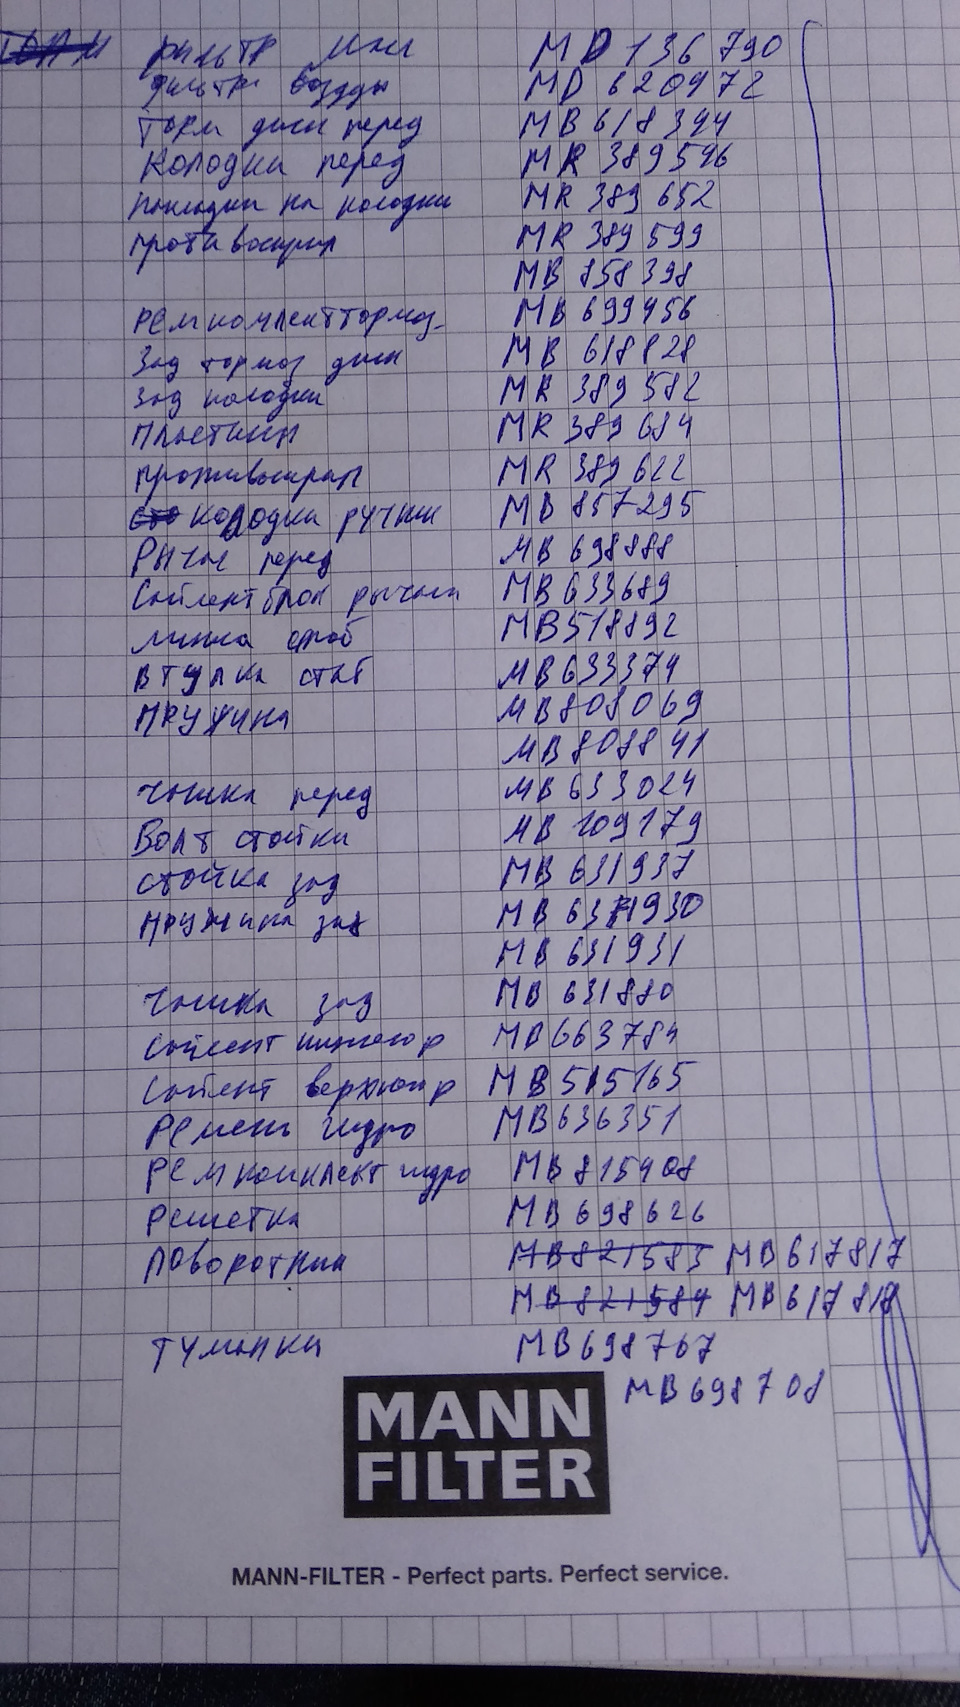 фильтр мал MD 136790
фильтр возду MD 620472
Торм диск перед MB 618394
Колодки перед MR 389546
накладки на колодки MR 389 652
противоскрип MR 389 599
MB 858398
РЕМкомплект тормоз MB 699456
Зад тормоз диск MB 618828
Зад колодки MR 389 582
Пластины MR 389 684
противоскрип MR 389 622
колодки ручник MB 857295
Рычаг перед MB 698888
Сайлентблок рычага MB633689
линка стаб MB518892
Втулка стаб MB633374
Пружина MB808069
MB808841
чашка перед MB 633024
Болт стойки MB 109179
стойка зад MB 631937
пружина зад MB 631930
MB 631931
чашка зад MB 631880
Сайлент нижнего р MB663784
Сайлент верхнего р MB515165
Ремень гидро MB636351
РЕМ комплект гидро MB 815908
Решетка MB 698626
Поворотник MB821583 MB617817
MB 821584 MB617818
Туманки MB698767
MB698708
MANN
FILTER
MANN-FILTER - Perfect parts. Perfect service.